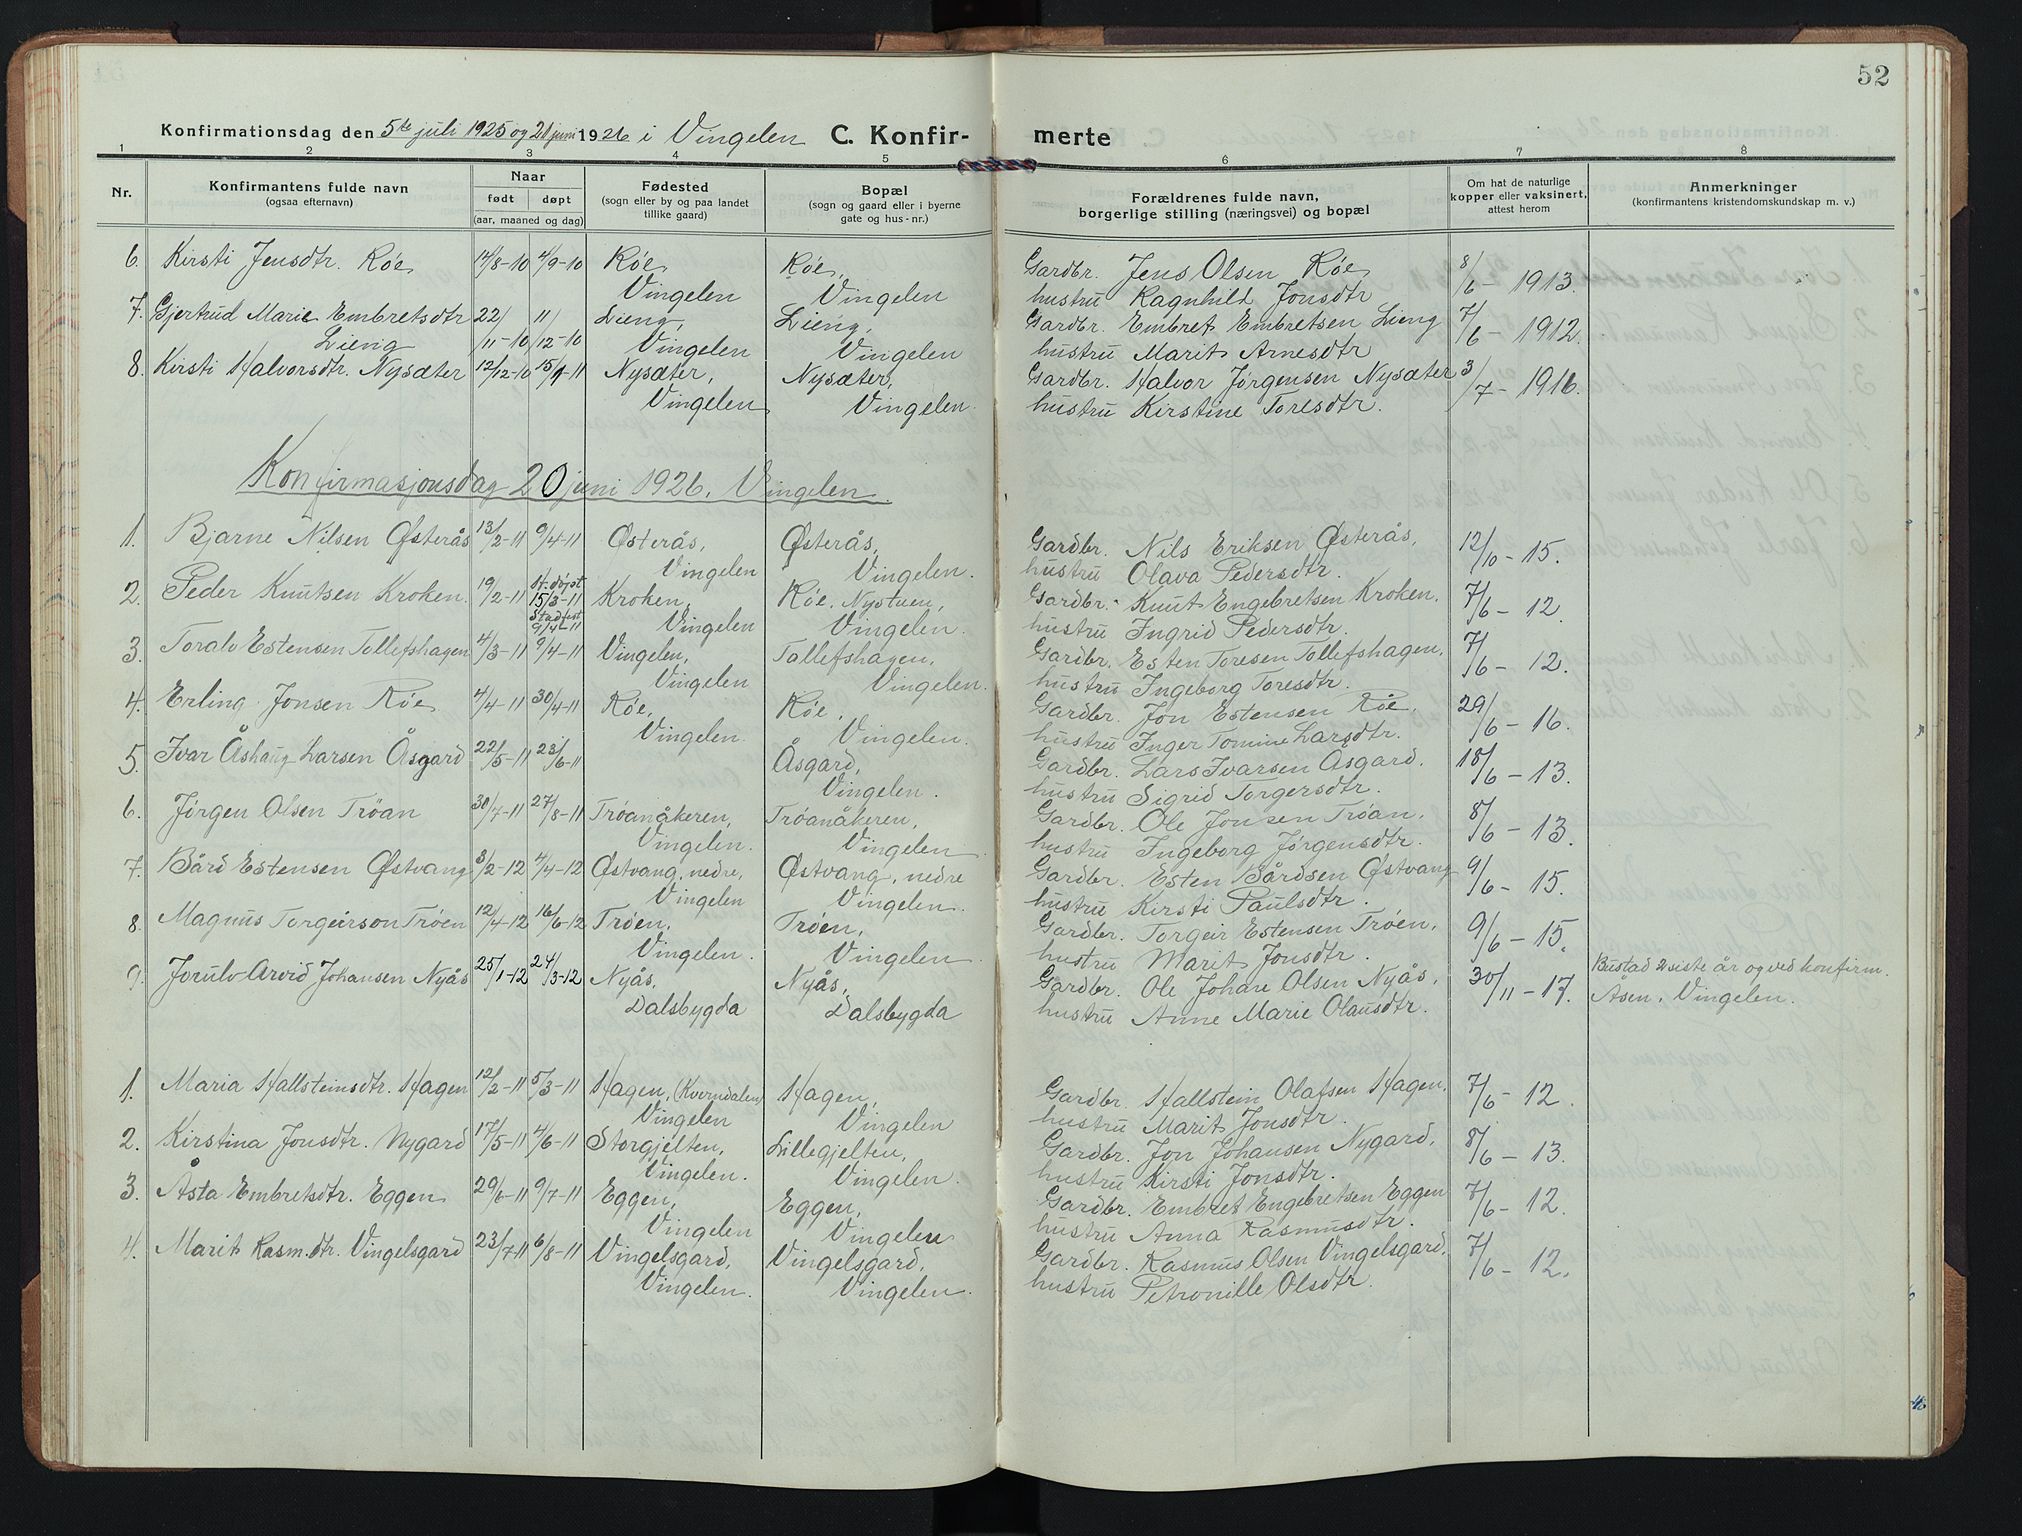 52
Konfirmationsdag den 5te juli 1925 og 20 juni 1926 i Vingelen C. Konfir- merte
1 2 3 4 5 6 7 8
Nr. Konfirmantens fulde navn (ogsaa efternavn) Naar født døpt (aar, maaned og dag) Fødested (sogn eller by og paa landet tillike gaard) Bopæl (sogn og gaard eller i byerne gate og hus-nr.) Forældrenes fulde navn, borgerlige stilling (næringsvei) og bopæl Om hat de naturlige kopper eller vaksinert, attest herom Anmerkninger (konfirmantens kristendomskundskap m. v.)
6. Kirsti Jensdtr. Røe 14/8-10 4/9-10 Røe Røe, Gardbr. Jens Olsen Røe 8/6-1913.
Vingelen Vingelen hustru Ragnhild Jonsdtr
7. Gjertrud Marie Embretsdtr 22/11-10 11/12-10 Lieng, Lieng, Gardbr. Embret Embretsen Lieng 7/6-1912.
Lieng Vingelen Vingelen hustru Marit Arnesdtr
8. Kirsti Halvorsdtr. Nysæter 12/12-10 15/1-11 Nysæter, Nysæter, Gardbr. Halvor Jørgensen Nysæter 3/7-1916.
Vingelen Vingelen. hustru Kirstine Toresdtr.
Konfirmasjonsdag 20 juni 1926. Vingelen.
1. Bjarne Nilsen Østerås 13/2-11 9/4-11 Østerås, Østerås, Gardbr. Nils Eriksen Østerås, 12/10-15.
Vingelen Vingelen. hustru Olava Pedersdtr.
2. Peder Knutsen Kroken. 19/2-11 Hj.døpt 15/3-11 Stadfest 9/4-11 Kroken, Røe, Nystuen, Gardbr. Knut Engebretsen Kroken. 7/6-12.
Vingelen Vingelen. hustru Ingrid Pedersdtr.
3. Toralv Estensen Tollefshagen 4/3-11 9/4-11 Vingelen, Tallefshagen, Gardbr. Esten Toresen Tollefshagen. 7/6-12.
Vingelen Vingelen. hustru Ingeborg Toresdtr.
4. Erling Jonsen Røe 4/4-11 30/4-11 Røe, Røe, Gardbr. Jon Estensen Røe. 29/6-16.
Vingelen. Vingelen. hustru Inger Tomine Larsdtr.
5. Ivar Åshaug Larsen Åsgard 22/5-11 23/6-11 Åsgard, Gardbr. Lars Ivarsen Åsgard. 18/6-13.
Vingelen. hustru Sigrid Torgersdtr.
6. Jørgen Olsen Trøan 30/7-11 27/8-11 Trøanåkeren, Trøanåkeren, Gardbr. Ole Jonsen Trøan. 8/6-13.
Vingelen. Vingelen hustru Ingeborg Jørgensdtr.
7. Bård Estensen Østvang 3/2-12 4/4-12 Østvang, nedre, Østvang, nedre Gardbr. Esten Bårdsen Østvang 9/6-15.
Vingelen Vingelen. hustru Kirsti Paulsdtr.
8. Magnus Torgeirson Trøen 12/4-12 16/6-12 Trøen, Trøen, Gardbr. Torgeir Estensen Trøen, 9/6-15.
Vingelen. Vingelen. hustru Marit Jonsdtr.
9. Jorulv Arvid Johansen Nyås 25/1-12 24/3-12 Nyås, Nyås, Gardbr. Ole Johan Olsen Nyås, 30/11-17. Bustad 2 siste år og ved konfirm.
Dalsbygda Dalsbygda hustru Anne Marie Olausdtr. Åsen, Vingelen.
1. Maria Hallsteinsdtr. Hagen 12/2-11 5/3-11 Hagen, (Kverndalen) Hagen, Gardbr. Hallstein Olafsen Hagen. 7/6-12.
Vingelen Vingelen hustru Marit Jonsdtr.
2. Kirstina Jonsdtr. Nygard 17/5-11 4/6-11 Storgjelten, Lillegjelten, Gardbr. Jon Johansen Nygard. 8/6-13.
Vingelen. Vingelen. hustru Kirsti Jonsdtr.
3. Åsta Embretsdtr. Eggen 29/6-11 9/7-11 Eggen, Eggen, Gardbr. Embret Engebretsen Eggen 7/6-12.
Vingelen Vingelen hustru Anna Rasmusdtr.
4. Marit Rasm.dtr. Vingelsgard 23/7-11 6/8-11 Vingelsgard, Vingelsgard, Gardbr. Rasmus Olsen Vingelsgard. 7/6-12.
Vingelen. Vingelen. hustru Petronille Olsdtr.